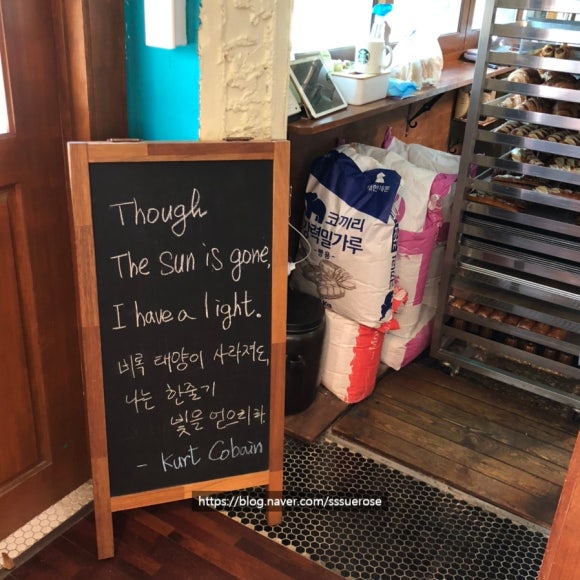 Though
The sun is gone,
I have a light.
비록 태양이 사라져도,
나는 한줄기
빛을 얻으리라.
- Kurt Cobain
대한제분
코끼리
강력밀가루
- 빵용 -
https://blog.naver.com/sssuerose